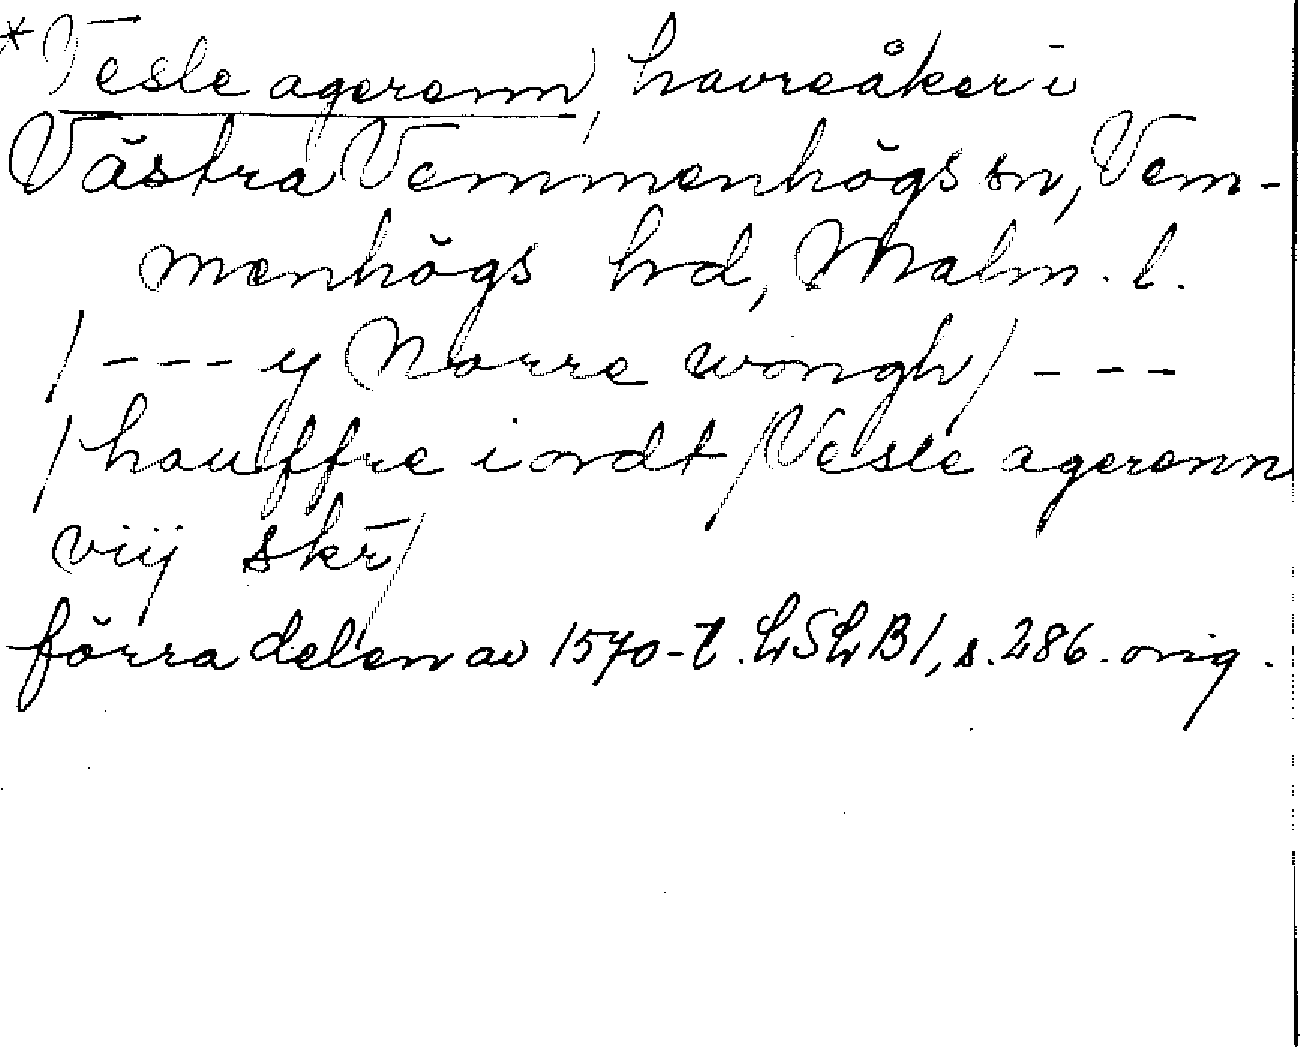 *Vesle agerenn, havreåker i
Västra Vemmenhögs sn, Vem-
menhögs hd, Malm. l.
/--- y Norre wongh/ ---
/hauffre iordt/Vesle agerenn
viij skr/
förra delen av 1570-t. LSLB1, s. 286. orig.